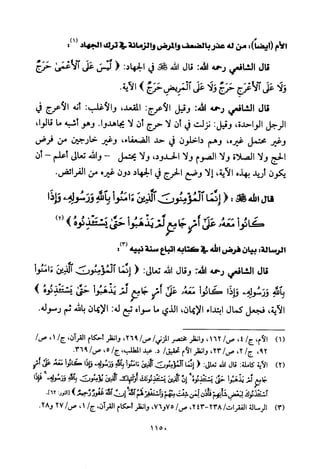 الأم (أيضاً): من له عذر بالضعف والمرض والزمانة في ترك الجهاد (١):
قال الشافعي رحمه الله: قال الله ﷻ في الجهاد: ﴿ لَيْسَ عَلَى ٱلْأَعْمَىٰ حَرَجٌ
وَلَا عَلَى ٱلْأَعْرَجِ حَرَجٌ وَلَا عَلَى ٱلْمَرِيضِ حَرَجٌ ﴾ الآية.
قال الشافعي رحمه الله: وقيل الأعرج: المقعد، والأغلب: أنه الأعرج في
الرجل الواحدة، وقيل: نزلت في أن لا حرج أن لا يجاهدوا. وهو أشبه ما قالوا،
وغير محتمل غيره، وهم داخلون في حد الضعفاء، وغير خارجين من فرض
الحج ولا الصلاة ولا الصوم ولا الحدود، ولا يحتمل – والله تعالى أعلم – أن
يكون أريد بهذه الآية، إلا وضع الحرج في الجهاد دون غيره من الفرائض.
قال الله ﷻ: ﴿ إِنَّمَا ٱلْمُؤْمِنُونَ ٱلَّذِينَ ءَامَنُوا۟ بِٱللَّهِ وَرَسُولِهِۦ وَإِذَا
كَانُوا۟ مَعَهُۥ عَلَىٰٓ أَمْرٍ جَامِعٍ لَّمْ يَذْهَبُوا۟ حَتَّىٰ يَسْتَـْٔذِنُوهُ ﴾ (٢)
الرسالة: بيان فرض الله في كتابه اتباع سنة نبيه (٣):
قال الشافعي رحمه الله: وقال الله تعالى: ﴿ إِنَّمَا ٱلْمُؤْمِنُونَ ٱلَّذِينَ ءَامَنُوا۟
بِٱللَّهِ وَرَسُولِهِۦ وَإِذَا كَانُوا۟ مَعَهُۥ عَلَىٰٓ أَمْرٍ جَامِعٍ لَّمْ يَذْهَبُوا۟ حَتَّىٰ يَسْتَـْٔذِنُوهُ ﴾
الآية، فجعل كمال ابتداء الإيمان، الذي ما سواه تبع له: الإيمان بالله ثم رسوله.
(١) الأم، ج/ ٤، ص/ ١٦٢، وانظر مختصر المزني/ ص/ ٢٦٩، وانظر أحكام القرآن، ج/ ١، ص/
٩٢، ج/ ٢، ص/ ٢٣، وانظر الأم تحقيق/ د. عبد المطلب، ج/ ٥، ص/ ٣٦٩.
(٢) الآية كاملة: قال الله تعالى: ﴿ إِنَّمَا ٱلْمُؤْمِنُونَ ٱلَّذِينَ ءَامَنُوا۟ بِٱللَّهِ وَرَسُولِهِۦ وَإِذَا كَانُوا۟ مَعَهُۥ عَلَىٰٓ أَمْرٍ
جَامِعٍ لَّمْ يَذْهَبُوا۟ حَتَّىٰ يَسْتَـْٔذِنُوهُ إِنَّ ٱلَّذِينَ يَسْتَـْٔذِنُونَكَ أُو۟لَٰٓئِكَ ٱلَّذِينَ يُؤْمِنُونَ بِٱللَّهِ وَرَسُولِهِۦ فَإِذَا
ٱسْتَـْٔذَنُوكَ لِبَعْضِ شَأْنِهِمْ فَأْذَن لِّمَن شِئْتَ مِنْهُمْ وَٱسْتَغْفِرْ لَهُمُ ٱللَّهَ إِنَّ ٱللَّهَ غَفُورٌ رَّحِيمٌ ﴾ [النور: ٦٢].
(٣) الرسالة الفقرات/ ٢٣٨-٢٤٣، ص/ ٧٥ و٧٦، وانظر أحكام القرآن، ج/ ١، ص/ ٢٧ و٢٨.
١١٥٠